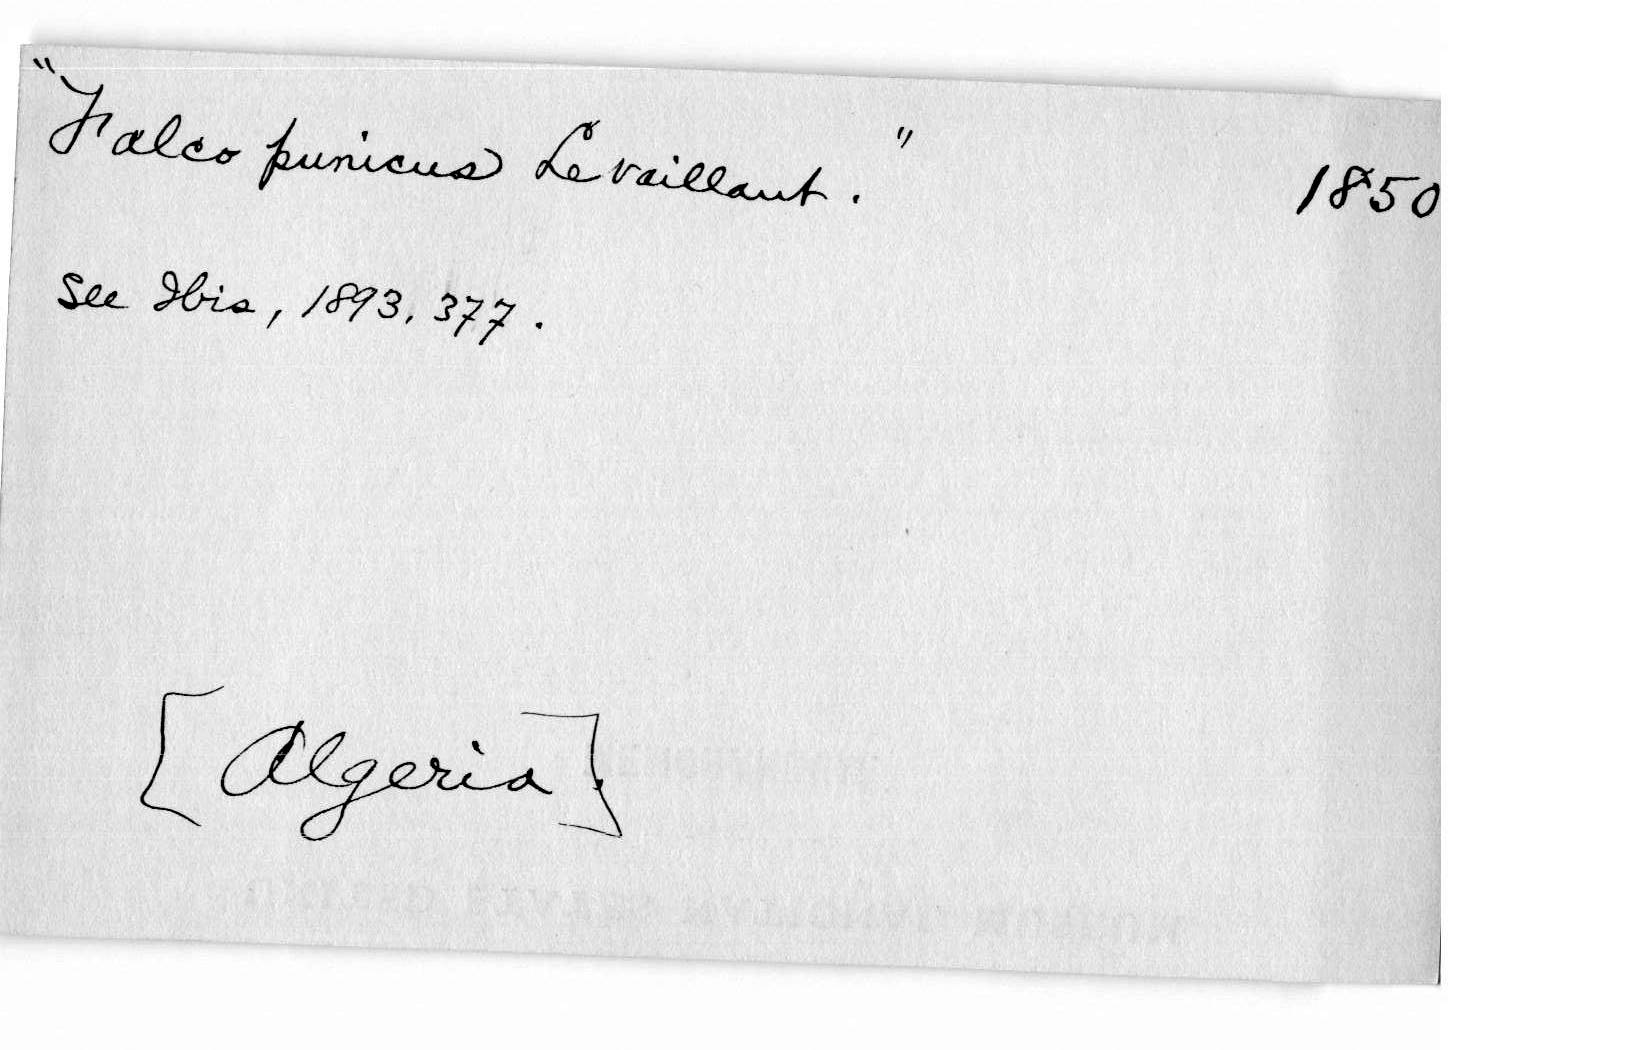 "Falco punicus Levaillant." 1850
See Ibis, 1893, 377.
[Algeria].